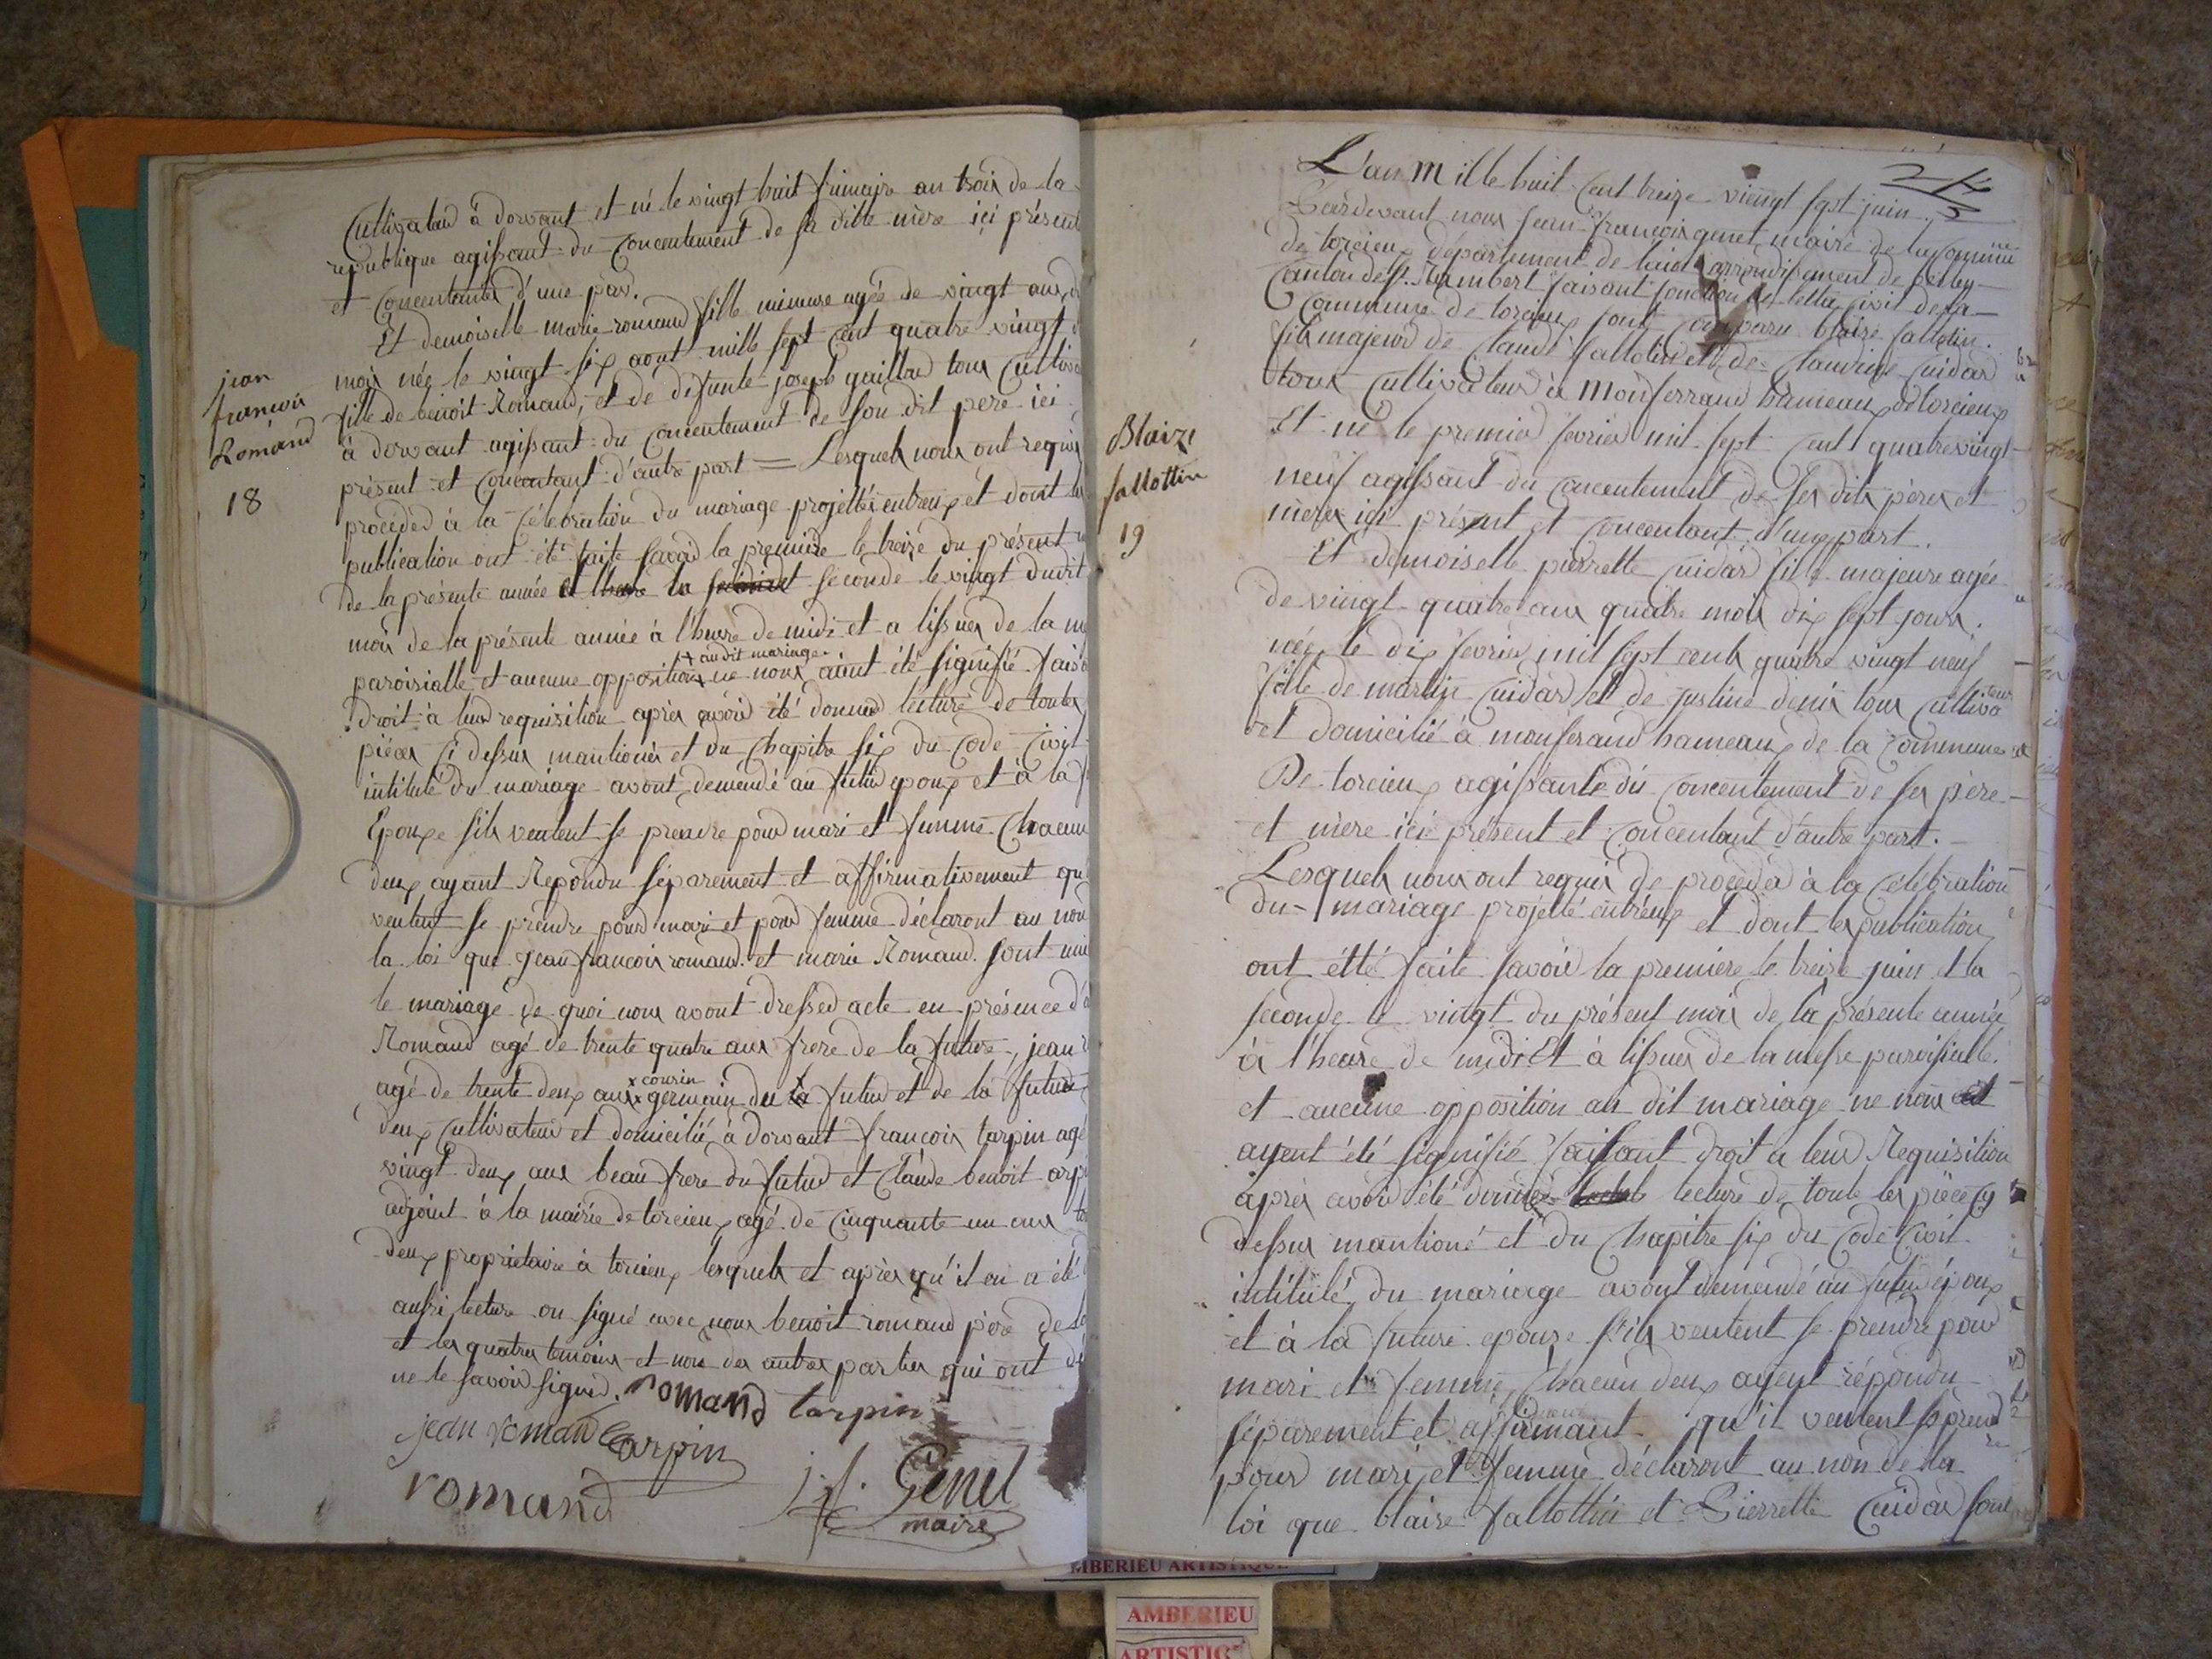 Cultivateur à dorvant et né le vingt huit frimaire an trois de la
republique agissant du concentement de sa ditte mère içi présent
et concentante d'une par.
Et demoiselle marie romand fille mineure agée de vingt ans
mois née le vingt six aout mille sept cent quatre vingt
fille de benoit Romand, et de defunte joseph gaillard tous cultiva
à dorvant agissant du concentement de son dit pere ici
présent et concentant d'autre part = Lesquels nous ont requis
procéder à la célébration du mariage projetté entreux et dont les
publication ont été faite savoir la première le treize du présent
de la présente année et la seconde le vingt dudit
mois de la présente année à l'heure de midi et a lissues de la me
+ au dit mariage
paroisialle et aucune opposition ne nous aient été signifié faisa
droit à leur requisition après avoir été donner lecture de toutes
pièces ci dessus mantionées et du chapitre six du code civil
intitulé du mariage avont demendé au futur epoux et à la f
Epouse sils veulent se prendre pour mari et femme chacun
deux ayant Repondu séparement et affirmativement qu
veulent se prendre pour mari et pour femme déclaront au nom
la loi que jean francois romand et marie Romand sont uni
le mariage de quoi nous avont dressed acte en présence d
Romand agé de trente quatre ans frere de la future, jean
x cousin
agé de trente deux ans germain du futur et de la future
deux cultivateur et domicilié à dorvant francois tarpin agé
vingt deux ans beau frere du futur et Claude benoit arpi
adjoint à la mairie de torcieux agé de cinquante un ans
deux propriétaire à torcieux lesquels et après qu'il en a été
aussi lecture on signé avec nous benoit romand père de la
et les quatre temoins et non des autres parties qui ont dé
ne le savoir signer. romand tarpin
jean romand Carpin
romand j. f. Genel
maire
jean
francois
Romand
18
L'an Mille huit cent treize viengt sept juin.
Pardevant nous jean francois genet maire de la commune
de torcieux département de lain arrondissement de Belley
canton de St. Rambert faisant fonction de lettat civil de la
Commune de torcieux sont comparu blaise fallotin.
fils majeur de claude fallotin et de claudine Cuidar
tous cultivateur à Monferrand hameaux de torcieux
Et né le premier fevrier mil sept cent quatrevingt
neuf agissant du concentement de ses dits pères et
mères içi présent et concentant d'une part.
Et demoiselle pierrette Cuidar fille majeure agée
de vingt quatre ans quatre mois dix sept jours.
née le dix fevrier mil sept cents quatre vingt neuf
fille de martin Cuidar et de justine denis tous cultivateur
et domicilié à monferand hameaux de la commune
De torcieux agissante du concentement de ses père
et mère ici présent et concentant d'autre part.
Lesquels nous ont requis de proceder à la célébration
du mariage projetté entreux et dont les publication
ont étté faite savoir la premiere le treize juin et la
seconde le vingt du présent mois de la présente année
à l'heure de midi Et à lissues de la messe paroisialle.
et aucune opposition au dit mariage ne nous
ayent été signifié faisant droit a leur Requisition
après avoir été donnée lecture de toute les pièces cy
dessus mantioné et du chapitre six du code civil
intitulé du mariage avont demendé au futur époux
et à la future epouse s'ils veulent se prendre pour
mari et femme chacun deux ayent répondu
séparement et affirmant qu'il veulent se prendre
pour mari et femme déclaront au nom de la
loi que blaise fallottin et Pierrette Cuidar sont
Blaize
fallottin
19
AMBERIEU ARTISTIQUE
AMBERIEU
ARTISTIQ